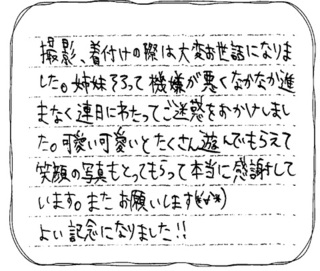 撮影、着付けの際は大変お世話になりま
した。姉妹そろって機嫌が悪くなかなか進
まなく連日にわたってご迷惑をおかけしまし
た。可愛い可愛いとたくさん遊んでもらえて
笑顔の写真もとってもらって本当に感謝して
います。またお願いします(*^^*)
よい記念になりました!!